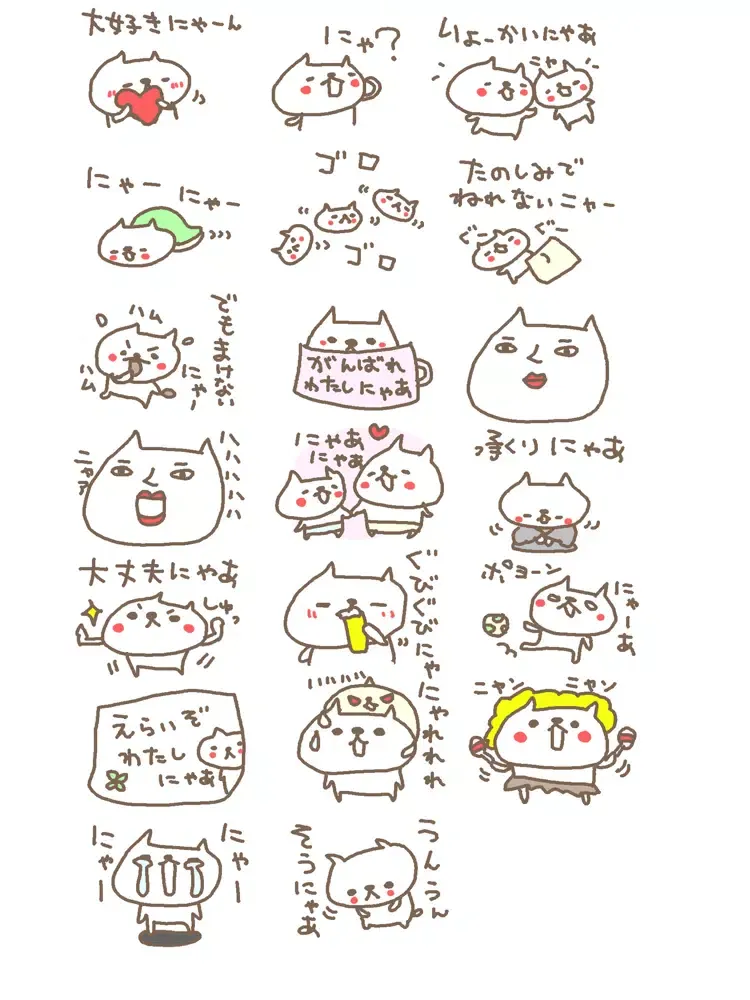 大好きにゃーん
にゃ?
りょーかいにゃあ
ニャ
にゃー にゃー
ゴロ
ゴロ
たのしみで
ねれないニャー
ぐー ぐー
ハム
ハム
でもまけない
にゃー
がんばれ
わたしにゃあ
ハハハハハ
ニャア
にゃあ
にゃあ
にゃあ
大丈夫にゃあ
しゅっ
ぐびぐびにゃ
ポヨーン
にゃーあ
えらいぞ
わたし
にゃあ
にゃれれれ
ニャン ニャン
にゃー
にゃー
うんうん
そうにゃあ